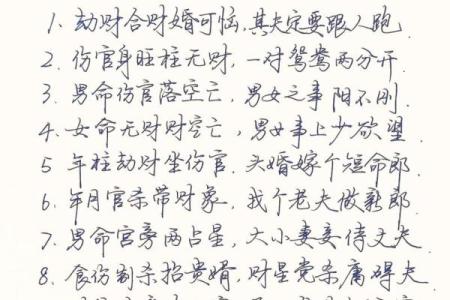 1. 劫财合财婚可恼,其夫定要跟人跑
2. 伤官身旺柱无财,一对鸳鸯两分开.
3. 男命伤官落空亡,男女之事阳不刚
4. 女命无财财空亡,男女事上少欲望
5 年柱劫财坐伤官.头婚嫁个短命郎
6. 年月官杀带财象,找个老夫做新郎
7. 男命宫旁两占星,大小妻妾侍丈夫
8. 食伤制杀招贵婿,财星党杀庸碍夫